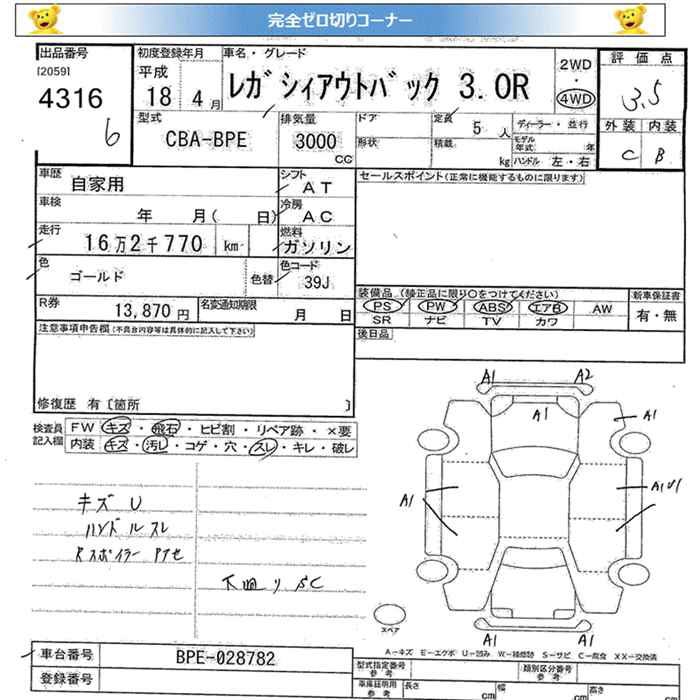 完全ゼロ切りコーナー
出品番号
[2059]
4316
6
初度登録年月
平成
18 4月
車名・グレード
レガシィアウトバック 3.0R
2WD
・
4WD
評価点
3.5
外装 内装
C B
型式
CBA-BPE
排気量
3000
CC
ドア
形状
定員
5人
積載
kg
ディーラー・並行
モデル年式 年
ハンドル 左・右
車歴
自家用
シフト
AT
車検
年 月( 日)
冷房
AC
走行
16万2千770 km
燃料
ガソリン
色
ゴールド
色替
色コード
39J
R券
13,870円
名変通知期限
月 日
セールスポイント(正常に機能するものに限ります)
装備品 (純正品に限り〇をつけてください)
PS PW ABS エアB AW
SR ナビ TV カワ
新車保証書
有・無
後日品
注意事項申告欄(不良台内容等は具体的に記入して下さい)
修復歴 有〔箇所 〕
検査員記入欄
FW キズ・飛石・ヒビ割・リペア跡・×要
内装 キズ・汚レ・コゲ・穴・スレ・キレ・破レ
キズU
ハンドルスレ
Rスポイラーアセ
下廻りSC
A1 A2
A1
A1
A1
A1
A1 A1
スペア
A-キズ E-エクボ U-凹み W-補修跡 S-サビ C-腐食 XX-交換済
車台番号
BPE-028782
登録番号
型式指定番号
参考
類別区分番号
参考
車庫証明用
参考
長さ cm
幅 cm
高さ cm